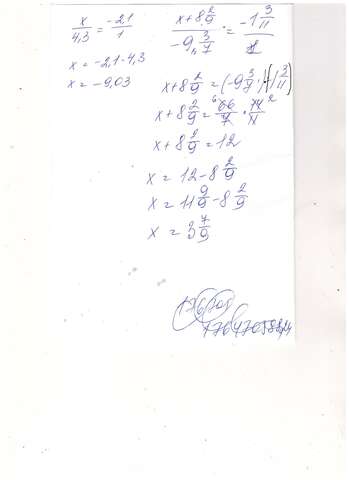 x/4,3 = -2,1/1
x = -2,1·4,3
x = -9,03
(x+8 2/9)/(-9 3/7) = (-1 3/11)/1
x+8 2/9 = (-9 3/7)·(-1 3/11)
x+8 2/9 = 66/7 · 14/11
x+8 2/9 = 12
x = 12-8 2/9
x = 11 9/9 - 8 2/9
x = 3 7/9